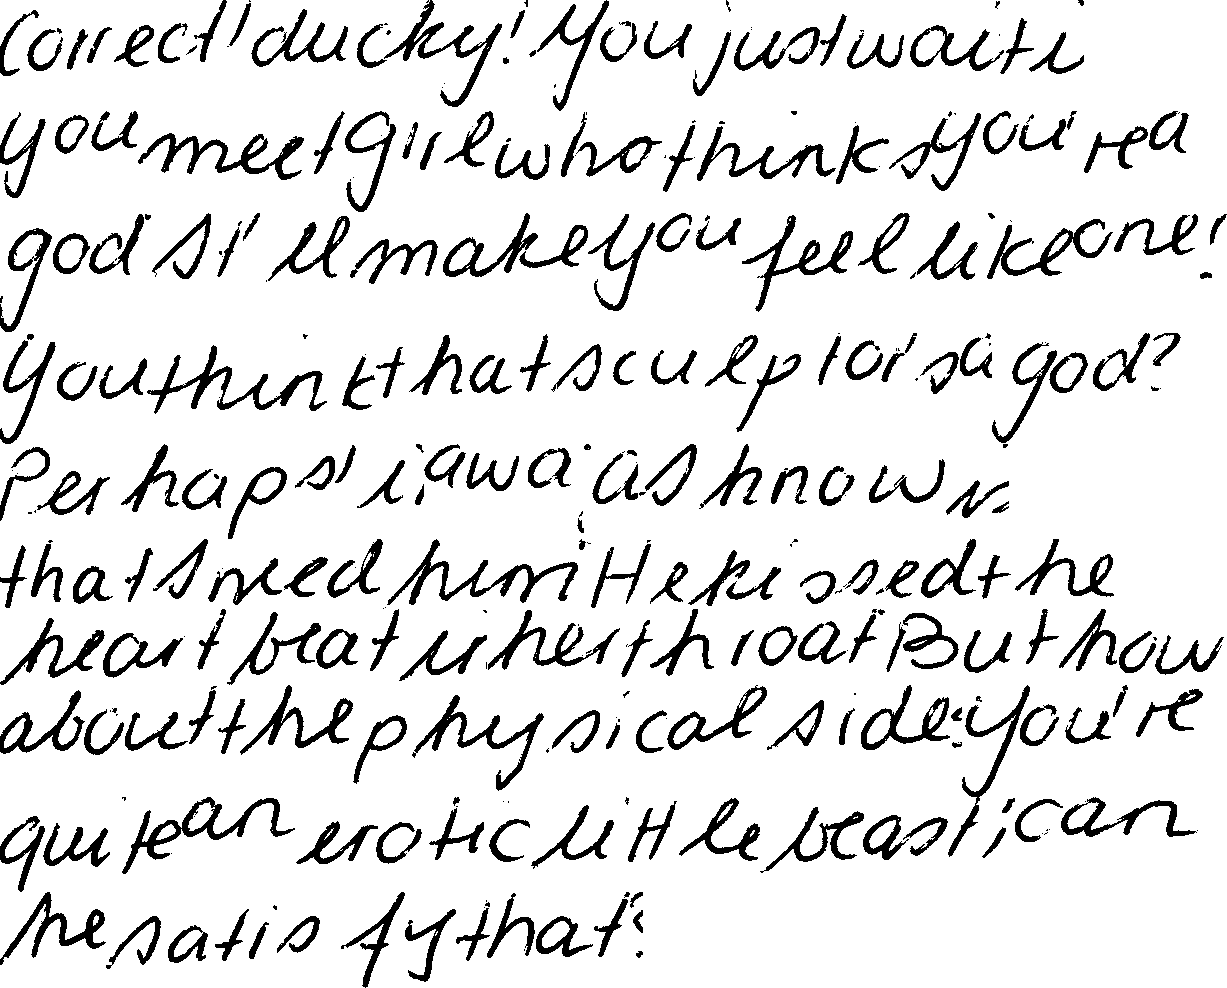 Correct' ducky! You just wait i
you meet girl who thinks you're a
god It'll make you feel like one!
You think that sculptor's a god?
Perhaps' i, awa as know
that's need him He kissed the
heart beat in her throat But how
about the physical side: you're
quite an erotic little beast; can
he satisfy that?